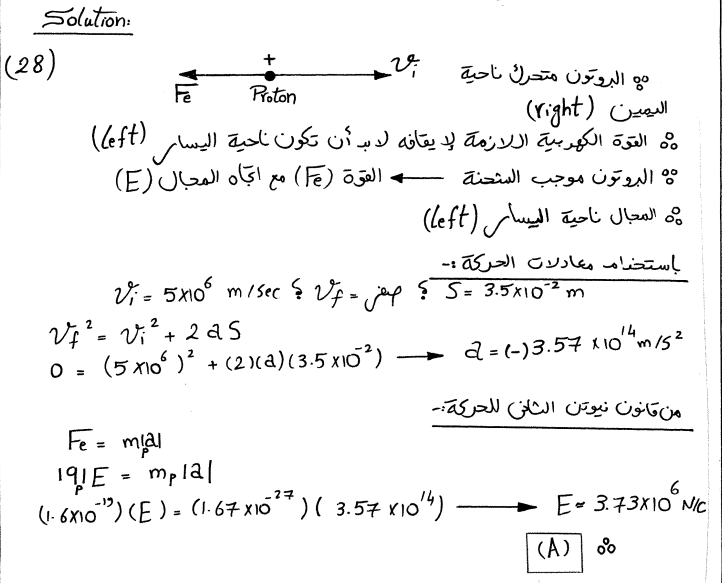 Solution:
(28)
+ Vi
Fe Proton
∴ البروتون متحرك ناحية
اليمين (right)
∴ القوة الكهربية اللازمة لإيقافه لابد أن تكون ناحية اليسار (left)
∵ البروتون موجب الشحنة ← القوة (Fe) مع اتجاه المجال (E)
∴ المجال ناحية اليسار (left)
باستخدام معادلات الحركة :-
Vi = 5x10⁶ m/sec ؟ Vf = صفر ؟ S = 3.5x10⁻² m
Vf² = Vi² + 2 a S
0 = (5x10⁶)² + (2)(a)(3.5x10⁻²) → a = (-)3.57 x10¹⁴ m/s²
من قانون نيوتن الثانى للحركة :-
Fe = mp|a|
|q|p E = mp|a|
(1.6x10⁻¹⁹)(E) = (1.67x10⁻²⁷)(3.57x10¹⁴) → E = 3.73x10⁶ N/C
(A) ∴